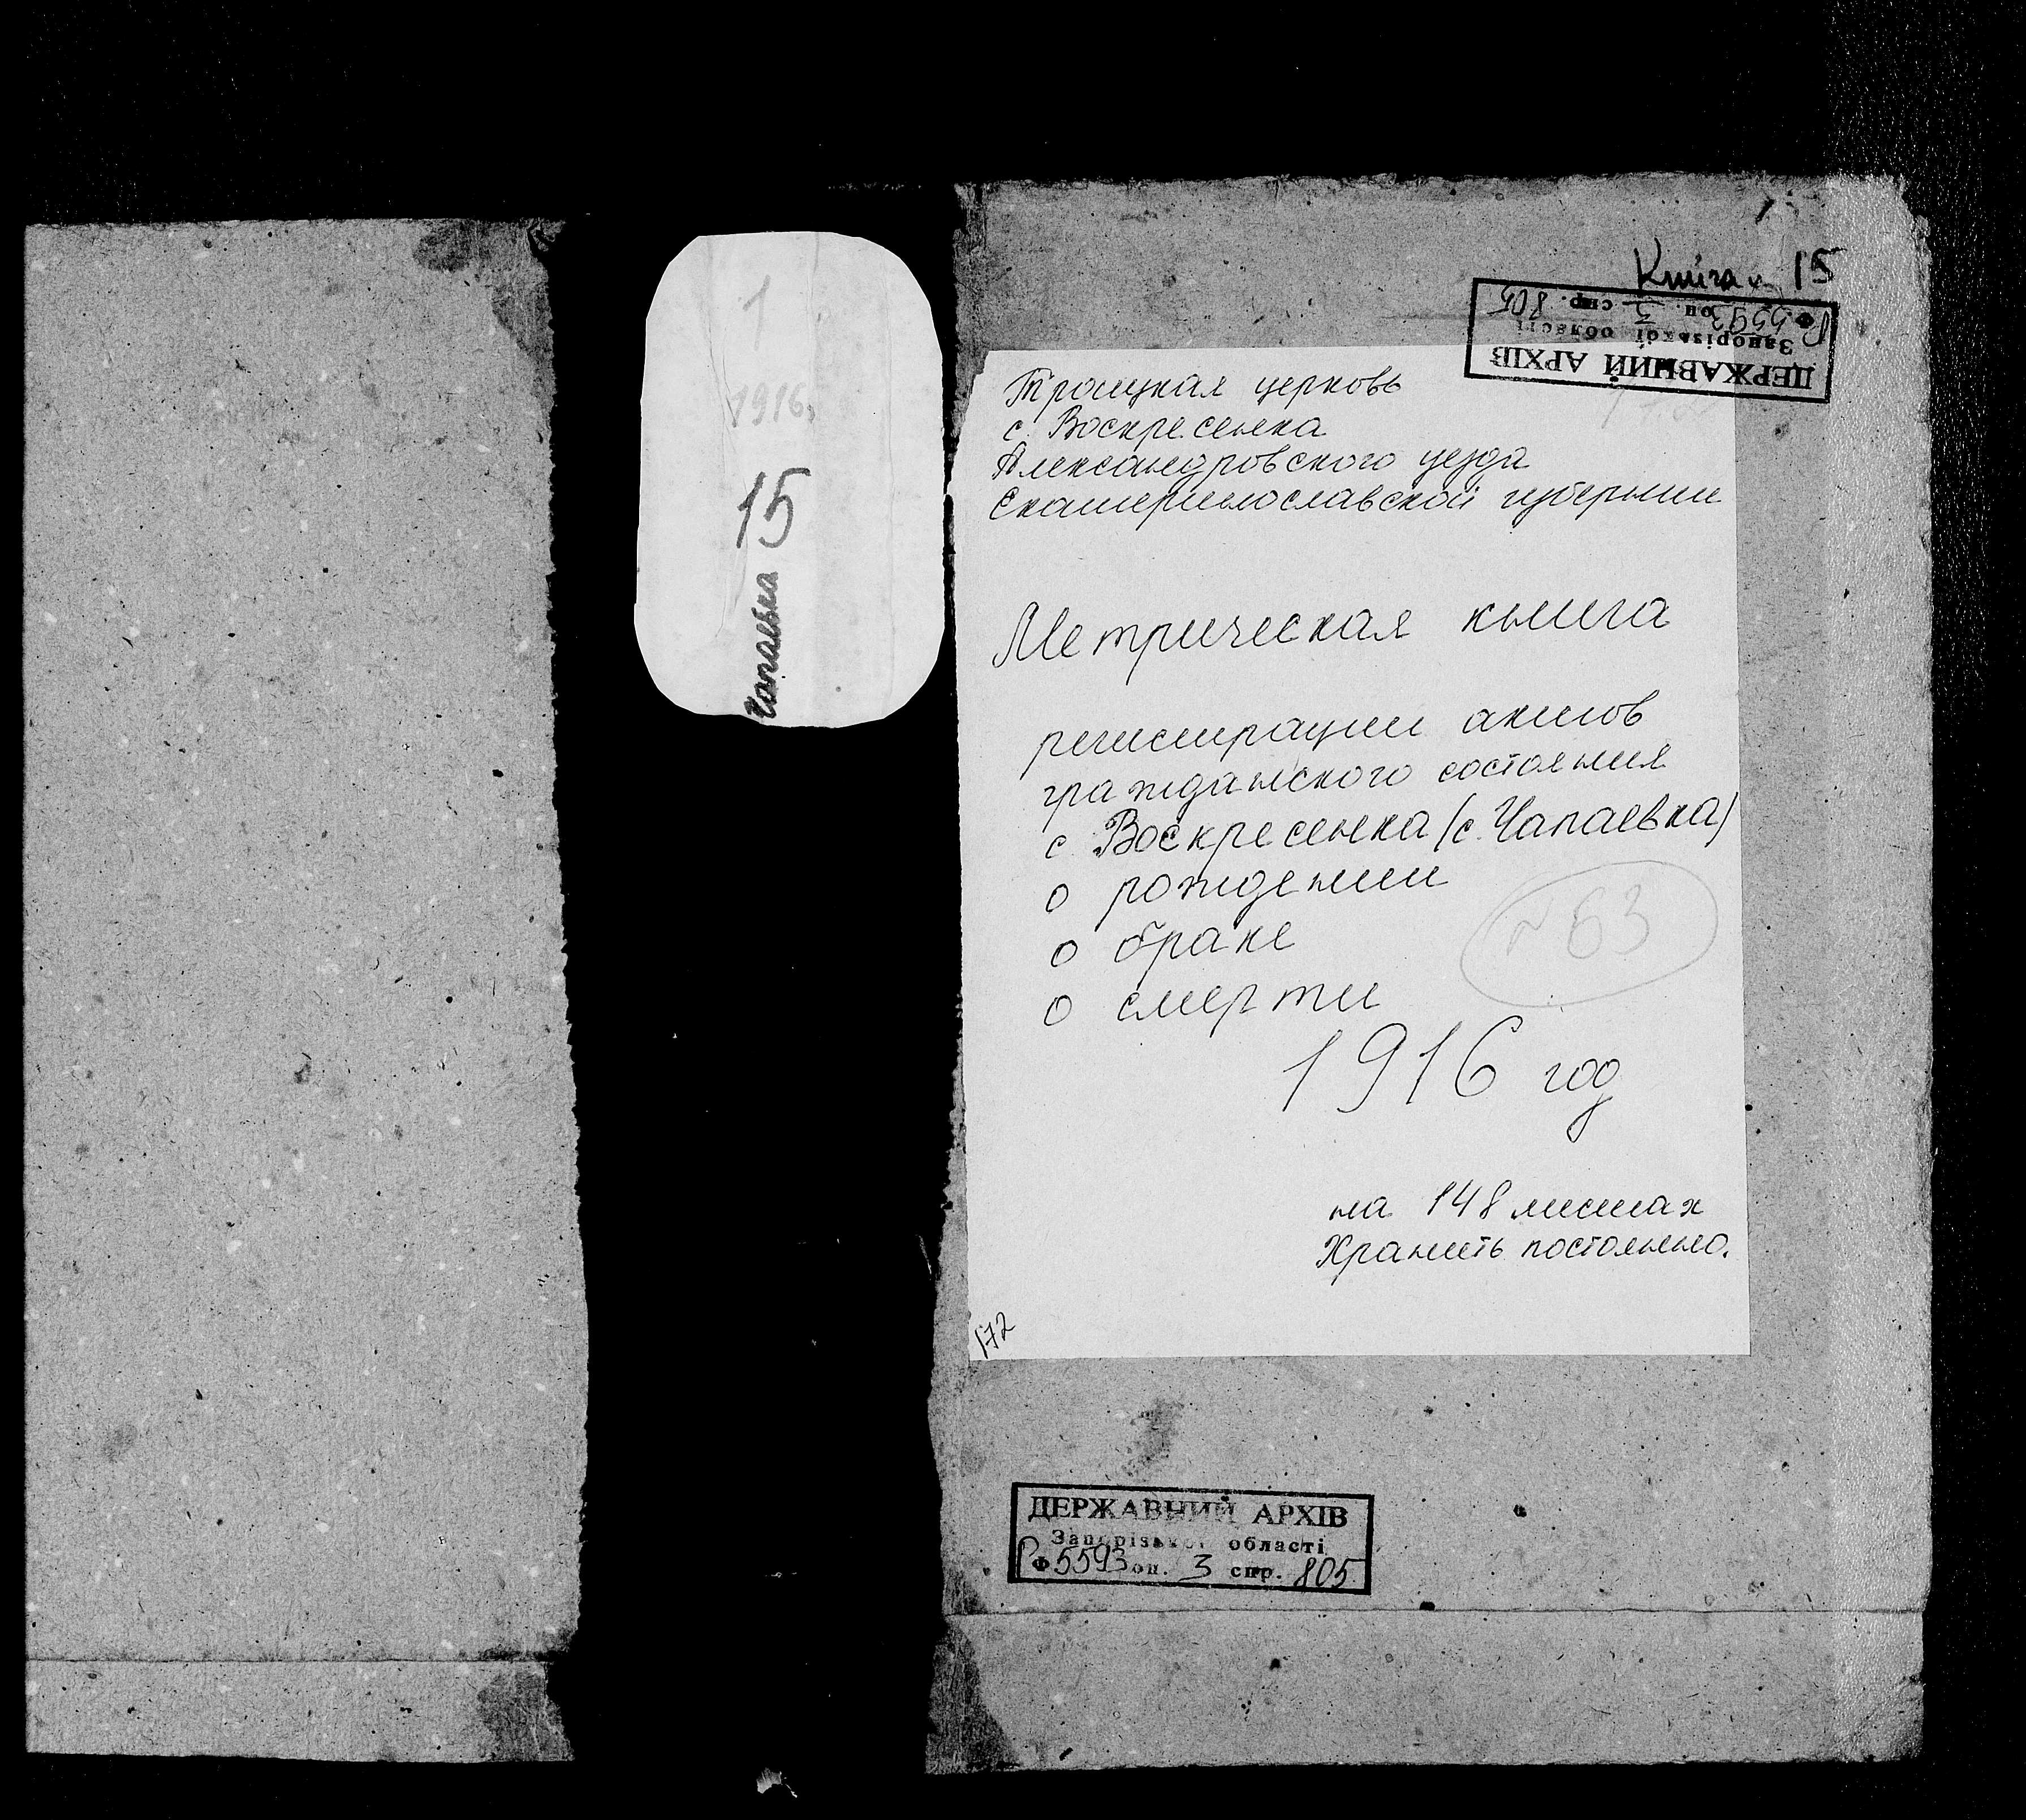 1
1916
15
Чапаевка
Книга № 15
ДЕРЖАВНИЙ АРХІВ
Запорізької області
Р Ф. 5593 оп. 3 спр. 805
Троицкая церковь
с. Воскресенка
Александровского уезда
Екатеринославской губернии
Метрическая книга
регистрации актов
гражданского состояния
с. Воскресенка (с. Чапаевка)
о рождении
о браке
о смерти
№ 63
1916 год
на 148 листах
Хранить постоянно.
172
ДЕРЖАВНИЙ АРХІВ
Запорізької області
Р Ф 5593 оп. 3 спр. 805